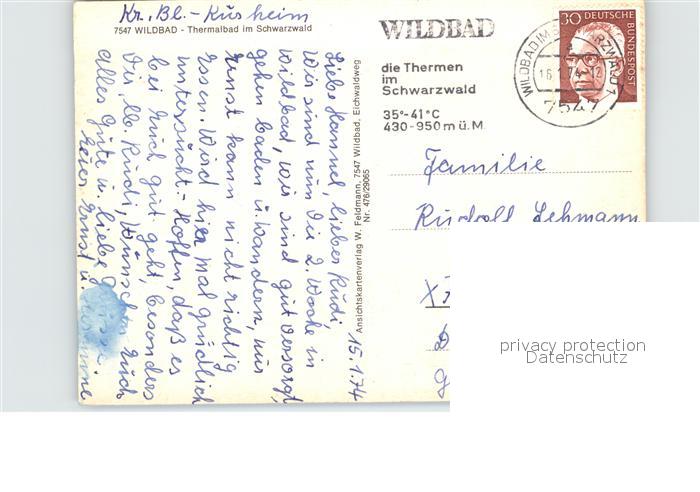 Kr. Bl. - Kusheim
7547 WILDBAD - Thermalbad im Schwarzwald
15.1.74
Liebe Hannel, lieber Rudi,
Wir sind nun die 2. Woche in
Wildbad, wir sind gut versorgt,
gehen baden u. wandern, nur
Ernst kann nicht richtig
Essen. Wird hier mal gründlich
untersucht. - Hoffen, daß es
bei Euch gut geht, besonders
Dir, lb. Rudi, wünschen Euch
alles Gute u. liebe
Euer Ernst u.
Ansichtskartenverlag W. Feldmann, 7547 Wildbad, Eichwaldweg
Nr. 476/29065
WILDBAD
die Thermen
im
Schwarzwald
35°-41°C
430-950 m ü. M.
WILDBAD IM SCHWARZWALD 1
a
16.1.74-12
7547
30 DEUTSCHE
BUNDESPOST
Familie
Rudolf Lehmann
privacy protection
Datenschutz